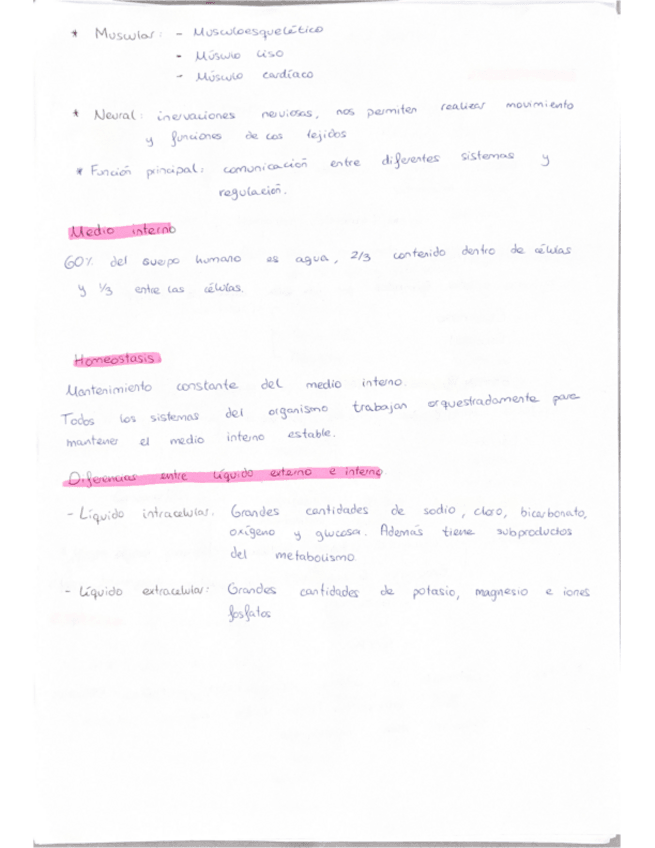 * Muscular: - Musculoesquelético
- Músculo liso
- Músculo cardíaco
* Neural: inervaciones nerviosas, nos permiten realizar movimiento
y funciones de los tejidos
* Función principal: comunicación entre diferentes sistemas y
regulación.
Medio interno
60% del cuerpo humano es agua, 2/3 contenido dentro de células
y 1/3 entre las células.
Homeostasis
Mantenimiento constante del medio interno.
Todos los sistemas del organismo trabajan orquestradamente para
mantener el medio interno estable.
Diferencias entre líquido externo e interno
- Líquido intracelular. Grandes cantidades de sodio, cloro, bicarbonato,
oxígeno y glucosa. Además tiene subproductos
del metabolismo.
- Líquido extracelular: Grandes cantidades de potasio, magnesio e iones
fosfatos